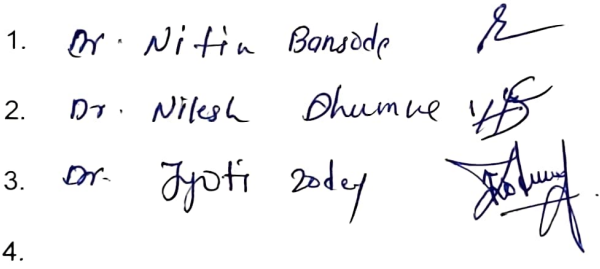 1. Dr. Nitin Bansode
2. Dr. Nilesh Dhumne
3. Dr. Jyoti Zodey
4.